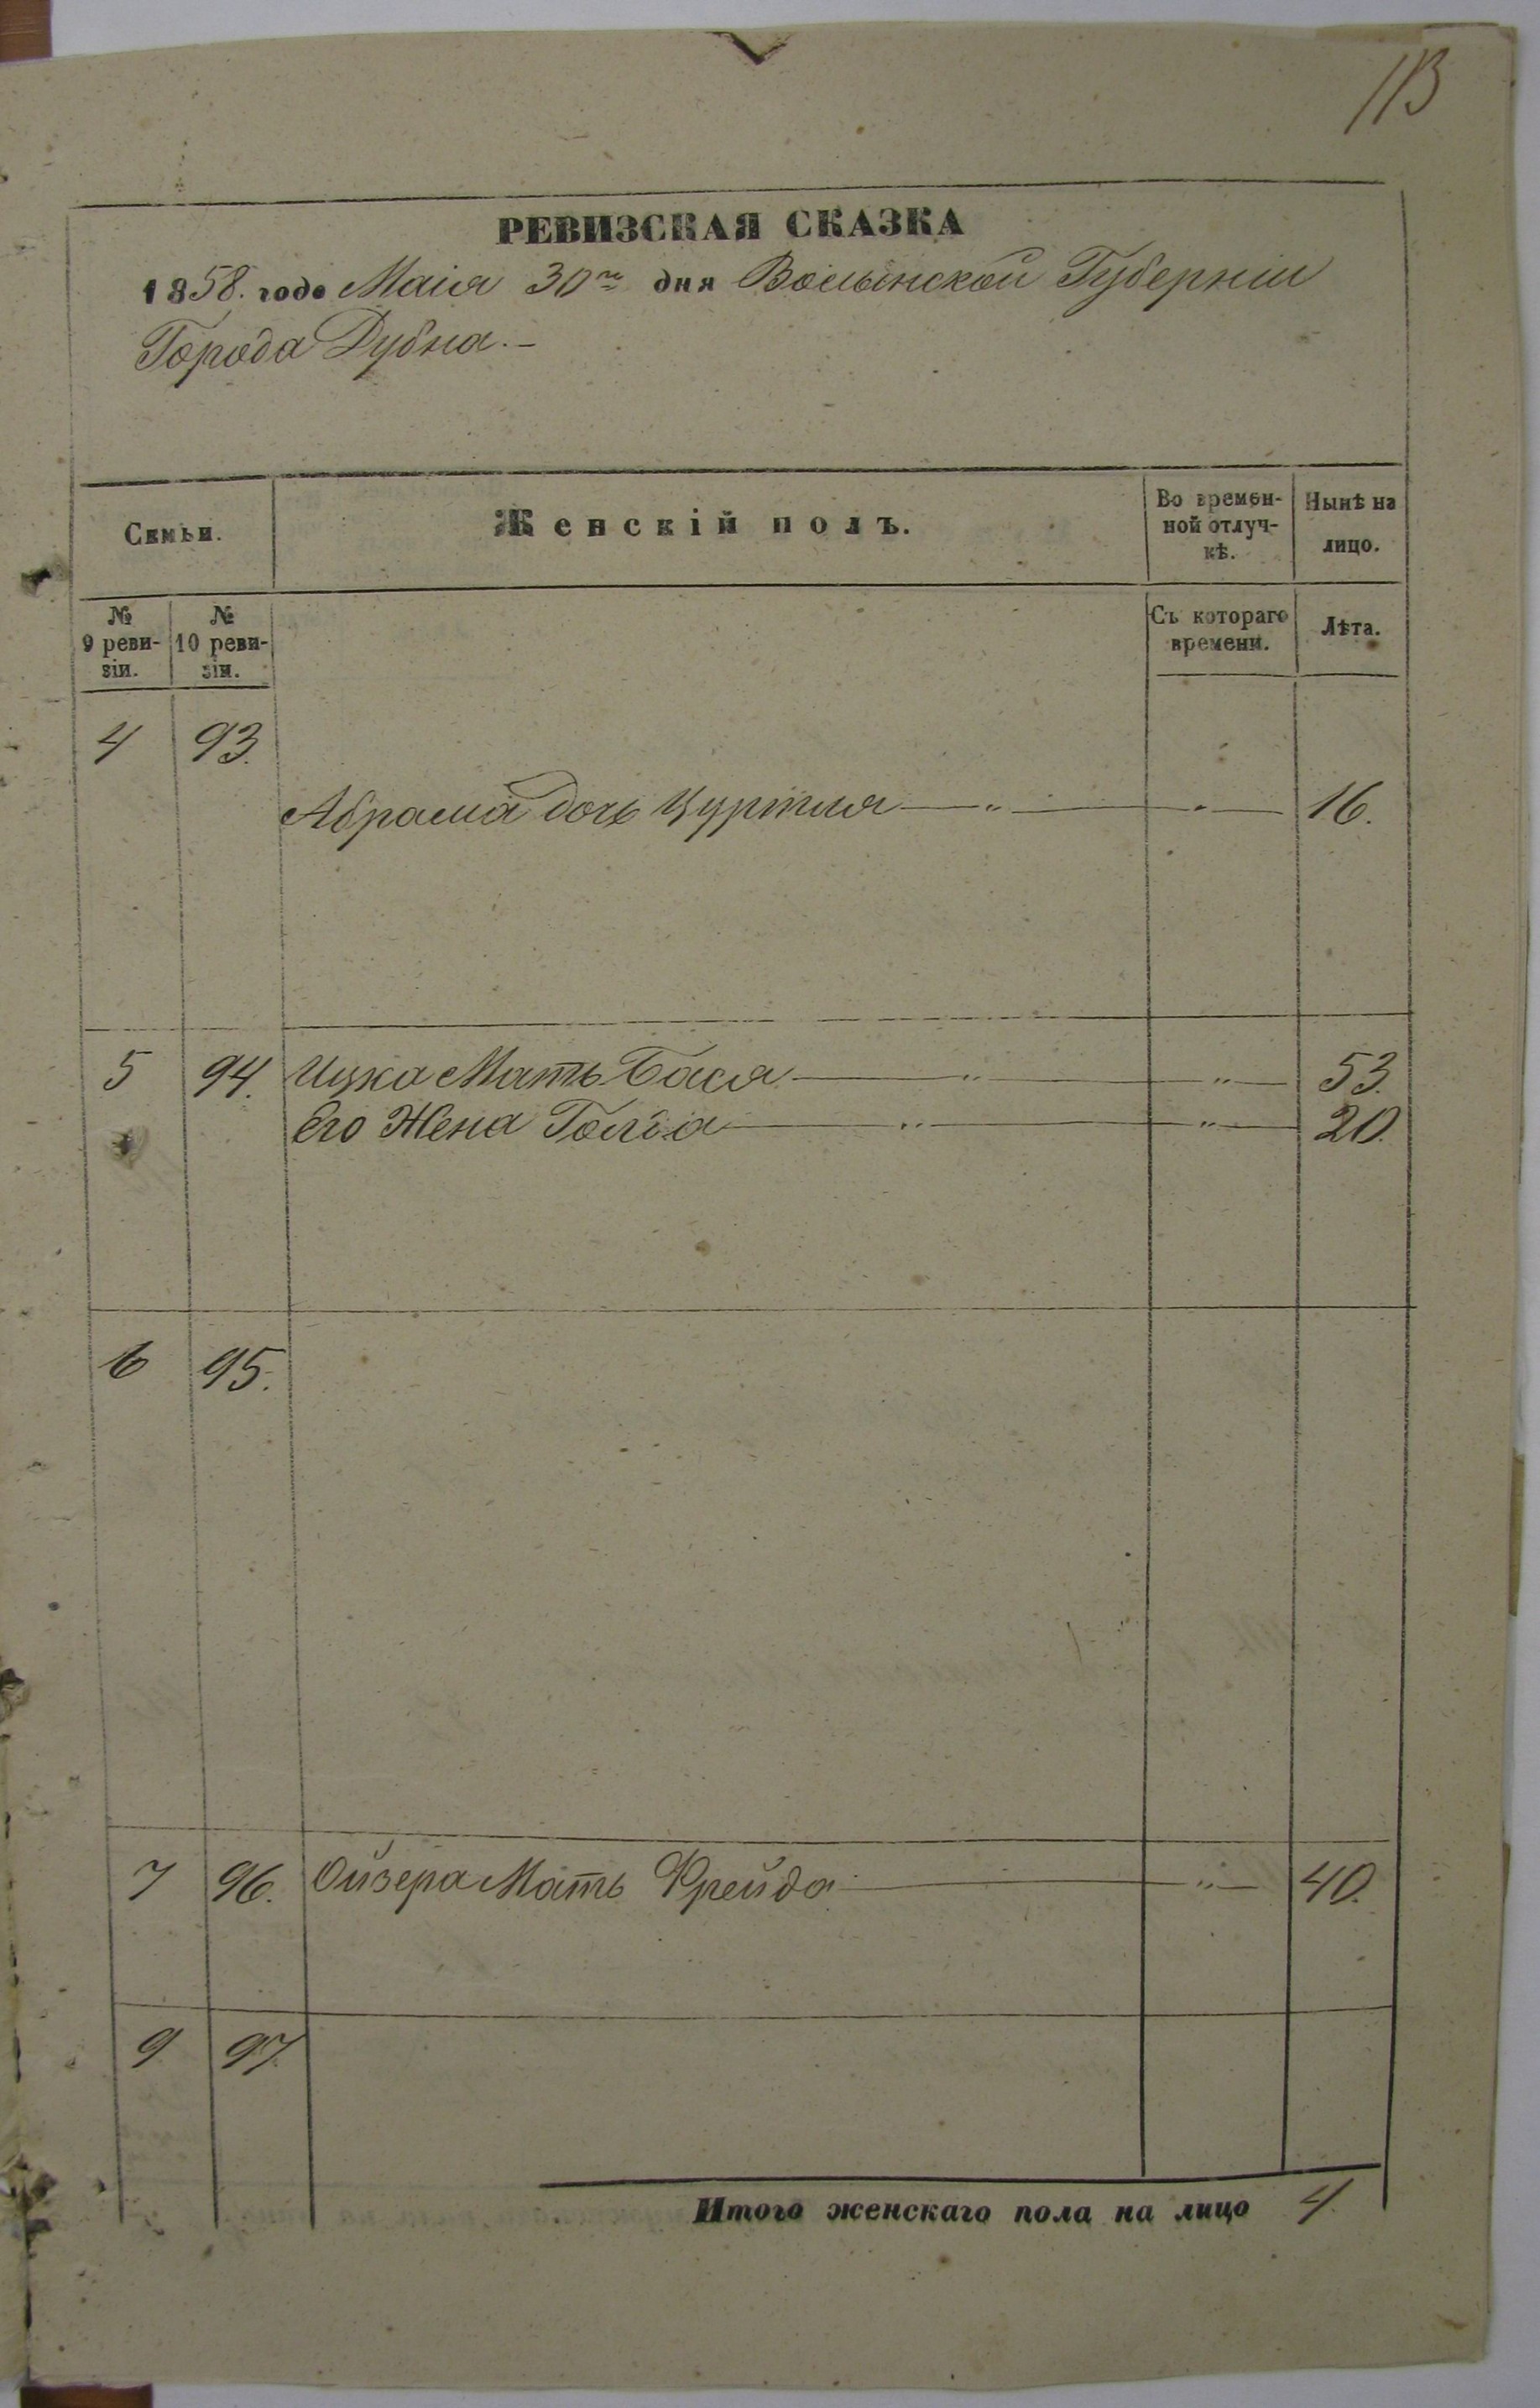 113
РЕВИЗСКАЯ СКАЗКА
1858. года Маія 30го дня Волынской Губерніи
Города Дубна.–
Семьи.
Женскій полъ.
Во времен-
ной отлуч-
кѣ.
Нынѣ на
лицо.
№
9 реви-
зіи.
№
10 реви-
зіи.
Съ котораго
времени.
Лѣта.
4 93.
Абрама дочь Цуртля — „ — „ — 16.
5 94. Ицка Мать Бася — „ — „ — 53.
Его Жена Голда — „ — „ — 20.
6 95.
7 96. Ойзера Мать Фрейда — „ — 40.
9 97.
Итого женскаго пола на лицо 4.